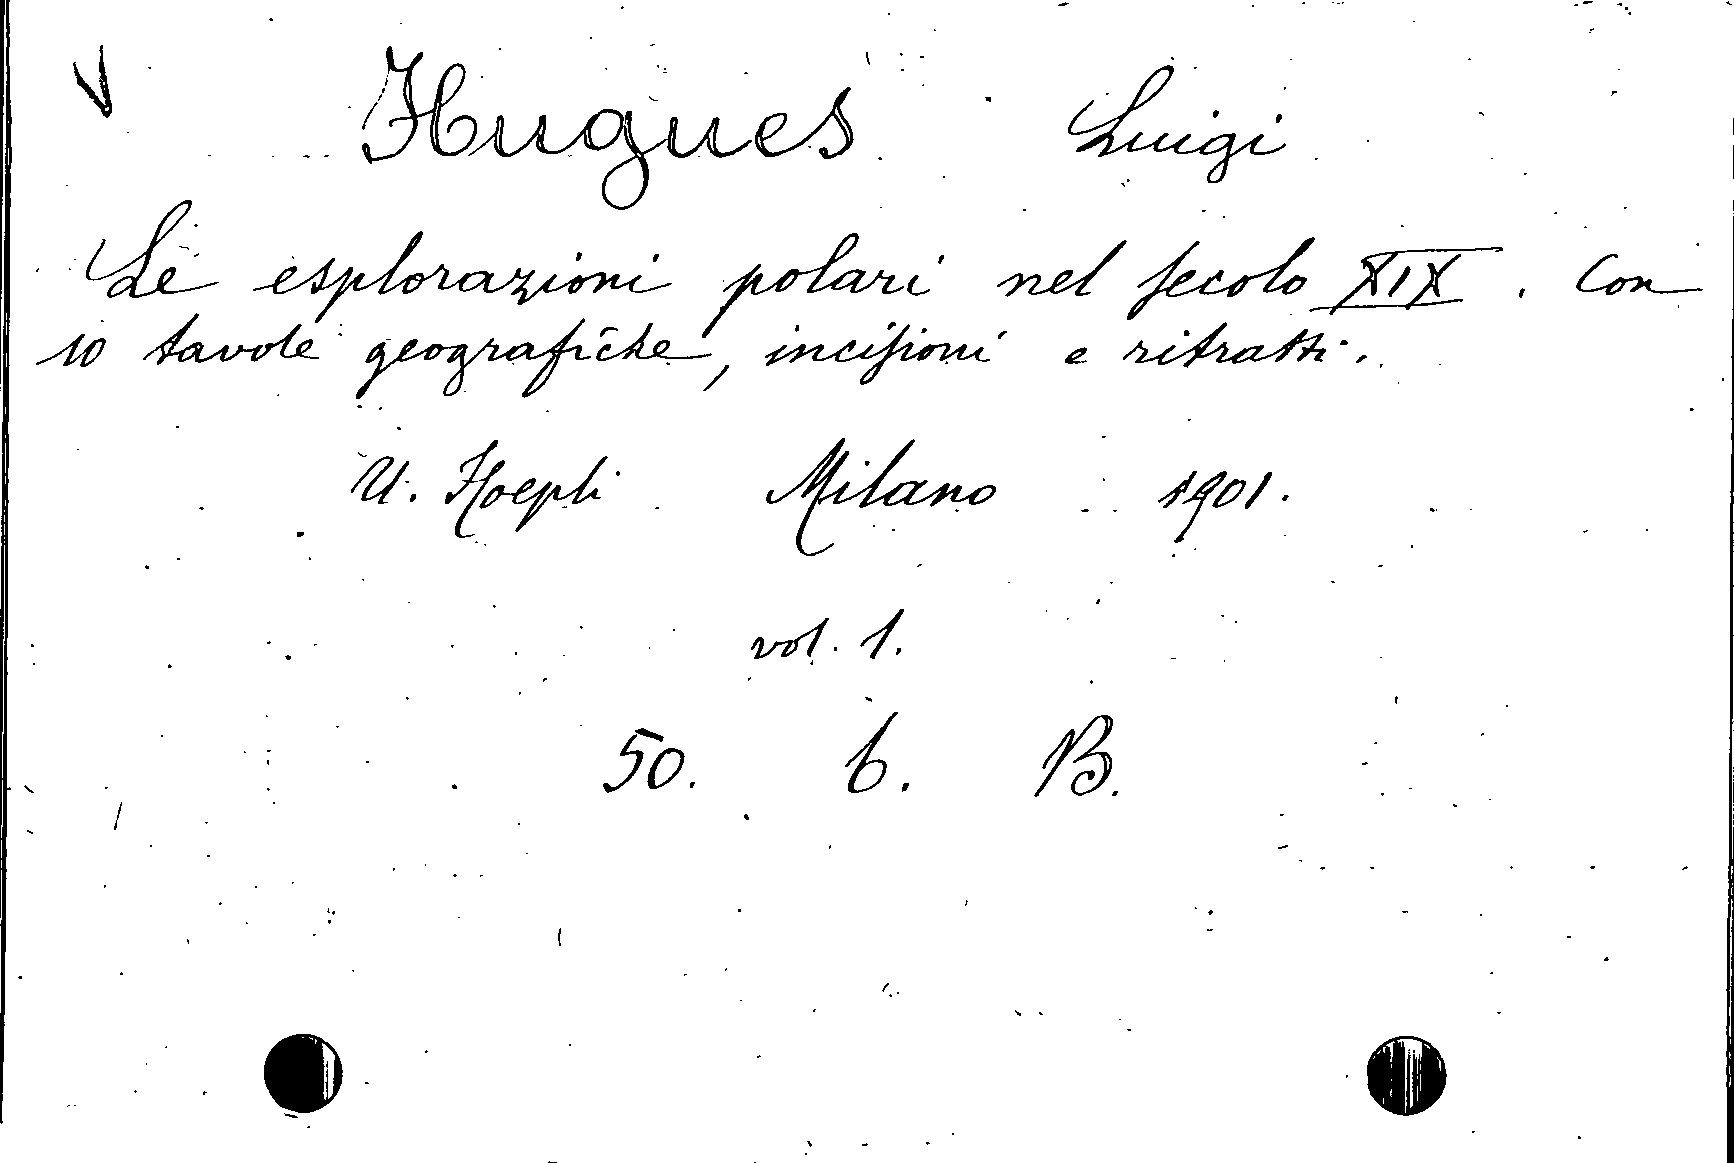 V Hugues Luigi
Le esplorazioni polari nel secolo XIX. Con
10 tavole geografiche, incisioni e ritratti.
U. Hoepli Milano 1901.
vol. 1.
50. 6. B.